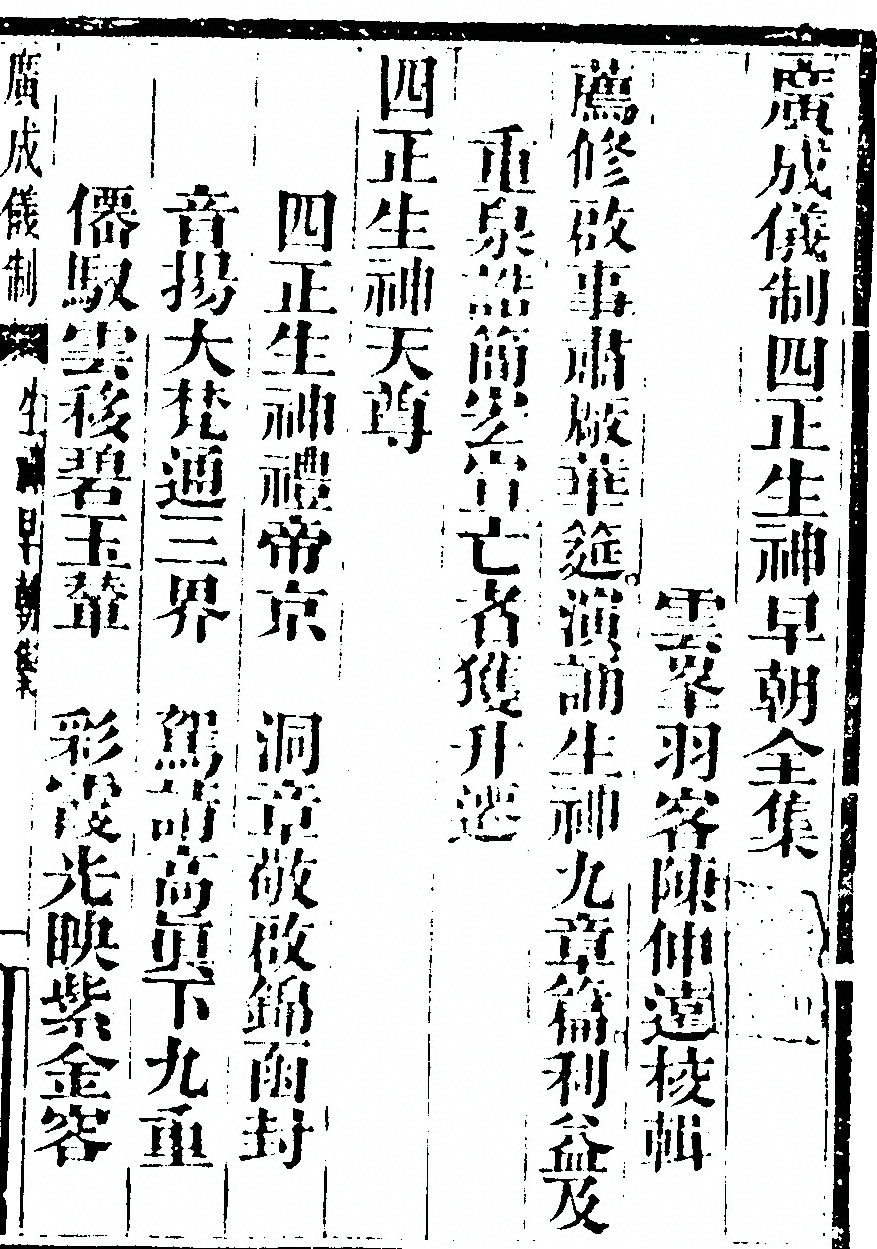 廣成儀制四正生神早朝全集
雲峯羽客陳仲遠校輯
薦修啟事肅啟華筵演誦生神九章篇利益及
重泉誥簡宏宣亡者獲升遷
四正生神天尊
四正生神禮帝京　洞章敬啟錦函封
音揚大梵通三界　駕請高眞下九重
僊馭雲移碧玉輦　彩霞光映紫金容
廣成儀制　生神早朝集